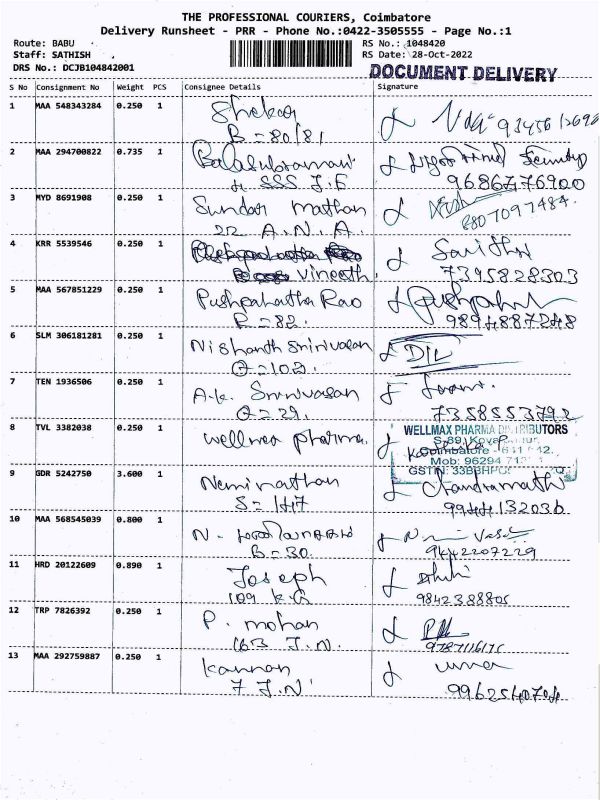 THE PROFESSIONAL COURIERS, Coimbatore
Delivery Runsheet - PRR - Phone No.:0422-3505555 - Page No.:1
Route: BABU RS No.: 1048420
Staff: SATHISH RS Date: 28-Oct-2022
DRS No.: DCJB104842001 DOCUMENT DELIVERY
S No Consignment No Weight PCS Consignee Details Signature
1 MAA 548343284 0.250 1 Shekar
B = 80/81
2 MAA 294700822 0.735 1 Balasubramani Security
SSS J.E 9686776900
3 MYD 8691908 0.250 1 Sundar mathan
212 A.N.A. 8807097484
4 KRR 5539546 0.250 1 Savithri
vineeth 7395828303
5 MAA 567851229 0.250 1 Pushpahatha Rao
R = 82. 9894887248
6 SLM 306181281 0.250 1 Nishanth Srinivasan D/L
O = 102.
7 TEN 1936506 0.250 1 A.k. Srinivasan
O = 29. 7358553792
8 TVL 3382038 0.250 1 wellmax pharma. WELLMAX PHARMA DISTRIBUTORS
Coimbatore
Mob: 96294
9 GDR 5242750 3.600 1 Neminathan Chandramathi
S = 147 9944132036
10 MAA 568545039 0.800 1 N.
B = 30. 9442207229
11 HRD 20122609 0.890 1 Joseph
109 K.G 9842388805
12 TRP 7826392 0.250 1 P. mohan
163 J.N. 9787116171
13 MAA 292759887 0.250 1 kannan uma
7 J.N 9962540704